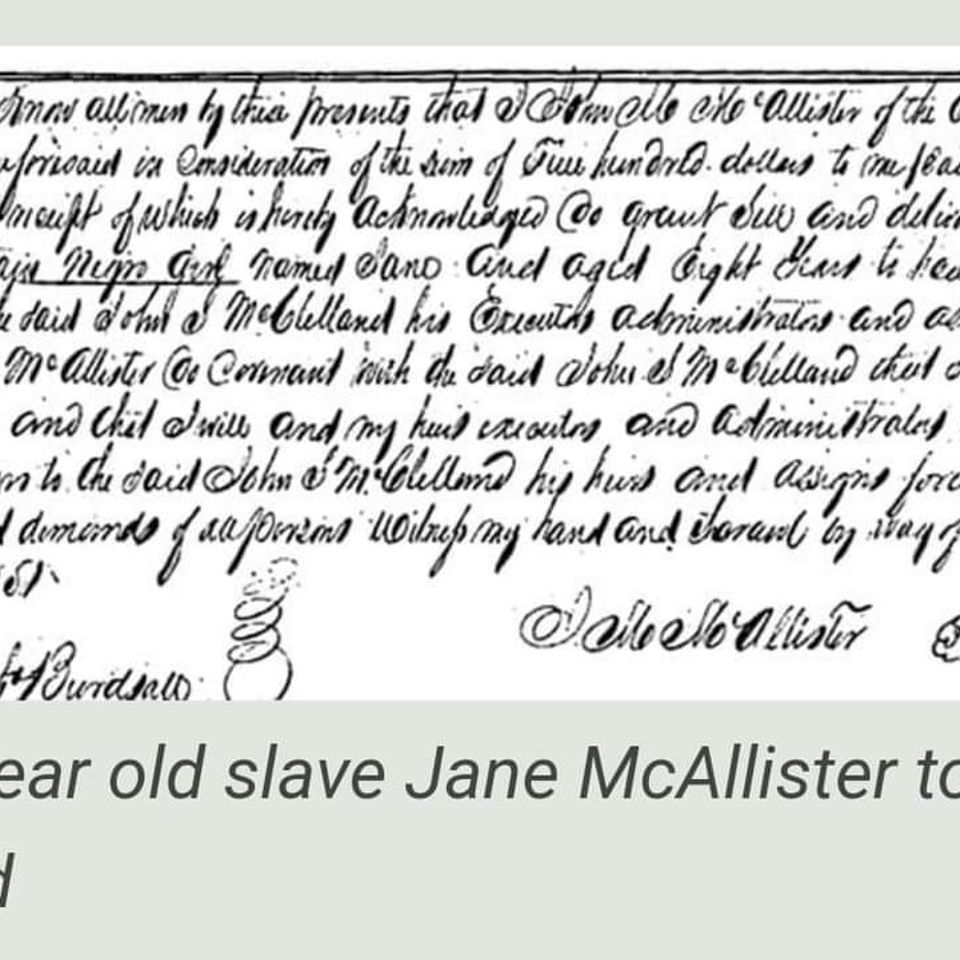 Know all men by these presents that I John Mc McAllister of the
aforesaid in Consideration of the sum of Five hundred dollars to me
receipt of which is hereby Acknowledged Do grant Sell and
Negro Girl named Jane And aged Eight Years to
said John S McClelland his Executors administrators and
McAllister Do Covenant with the said John S McClelland that
and that I will and my heirs executors and administrators
to the said John S McClelland his heirs and assigns
demands of all persons Witness my hand and by way of
51
J Mc McAllister
Burdsall
ear old slave Jane McAllister to
d